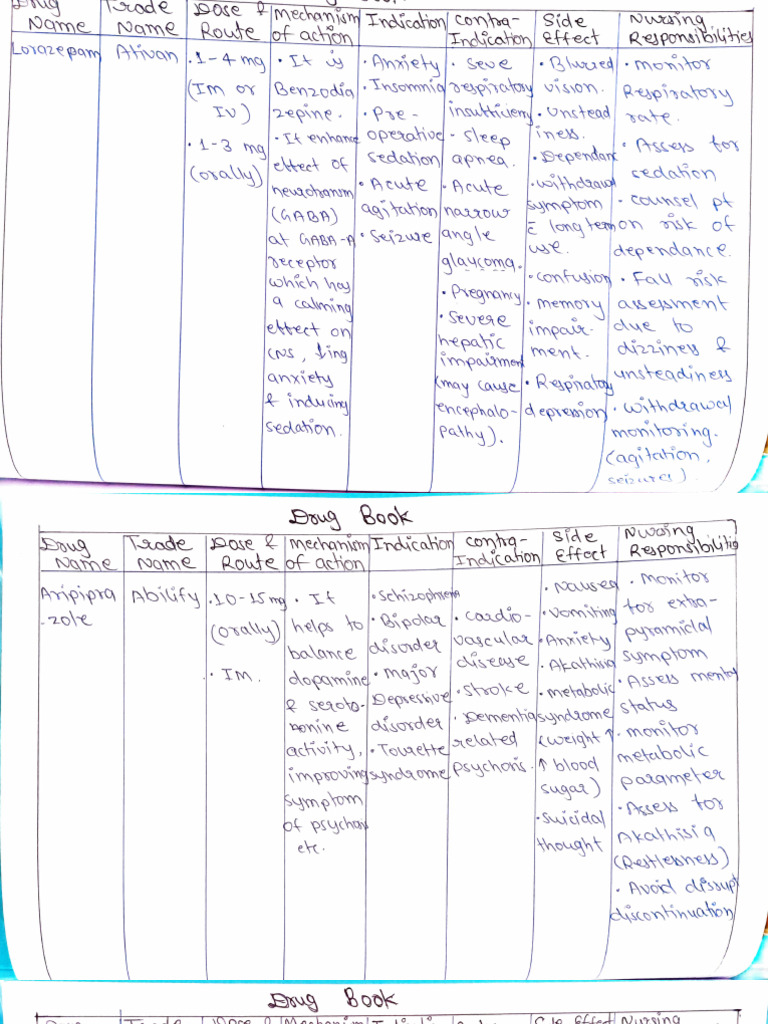 Drug
Name
Trade
Name
Dose &
Route
Mechanism
of action
Indication
Contra-
Indication
Side
Effect
Nursing
Responsibilities
Lorazepam
Ativan
• 1-4 mg
(IM or
IV)
• 1-3 mg
(orally)
• It is
Benzodia
zepine.
• It enhance
effect of
(GABA)
at GABA-A
receptor
which has
a calming
effect on
CNS, ↓ing
anxiety
& inducing
sedation.
• Anxiety
• Insomnia
• Pre-
operative
sedation
• Acute
agitation
• Seizure
• Seve
respiratory
insufficiency
- sleep
apnea.
• Acute
narrow
angle
glaucoma.
• Pregnancy
• Severe
hepatic
impairment
(may cause
encephalo-
pathy).
• Blurred
vision.
• Unstead
iness.
• Dependanc
• withdrawl
symptom
c̄ long term
use.
• confusion
• memory
impair-
ment.
• Respiratory
depression
• monitor
Respiratory
rate.
• Assess for
sedation
• counsel pt
on risk of
dependance.
• Fall risk
assessment
due to
dizziness &
unsteadiness
• withdrawal
monitoring.
(agitation,
seizures).
Drug Book
Drug
Name
Trade
Name
Dose &
Route
Mechanism
of action
Indication
Contra-
Indication
Side
Effect
Nursing
Responsibilitie
Aripipra
-zole
Abilify
• 10-15 mg
(orally)
• IM.
• It
helps to
balance
dopamine
& seroto-
nonine
activity,
improving
symptom
of psychosis
etc.
• Schizophrenia
• Bipolar
disorder
• major
Depressive
disorder
• Tourette
syndrome
• cardio-
vascular
disease
• stroke
• Dementia
related
psychosis.
• Nausea
• Vomiting
• Anxiety
• Akathisia
• metabolic
syndrome
(weight ↑
↑ blood
sugar)
• suicidal
thought
• monitor
for extra-
pyramidal
symptom
• Assess mental
status
• monitor
metabolic
parameter
• Assess for
Akathisia
(Restlesness)
• Avoid disrupt
discontinuation
Drug Book
Trade
Dose &
Nursing